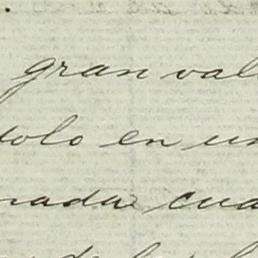 gran val
dolo en un
nada cua